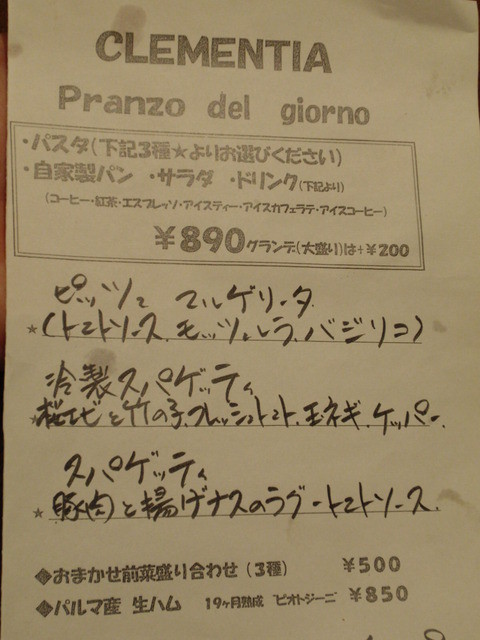 CLEMENTIA
Pranzo del giorno
・パスタ(下記3種★よりお選びください)
・自家製パン ・サラダ ・ドリンク(下記より)
(コーヒー・紅茶・エスプレッソ・アイスティー・アイスカフェラテ・アイスコーヒー)
¥890グランデ(大盛り)は+¥200
ピッツァ マルゲリータ
★(トマトソース、モッツァレラ、バジリコ)
冷製スパゲッティ
★桜エビと竹の子、フレッシュトマト、玉ネギ、ケッパー、
スパゲッティ
★豚肉と揚げナスのラグートマトソース、
◆おまかせ前菜盛り合わせ(3種) ¥500
◆パルマ産 生ハム 19ヶ月熟成 ピオトジーニ ¥850